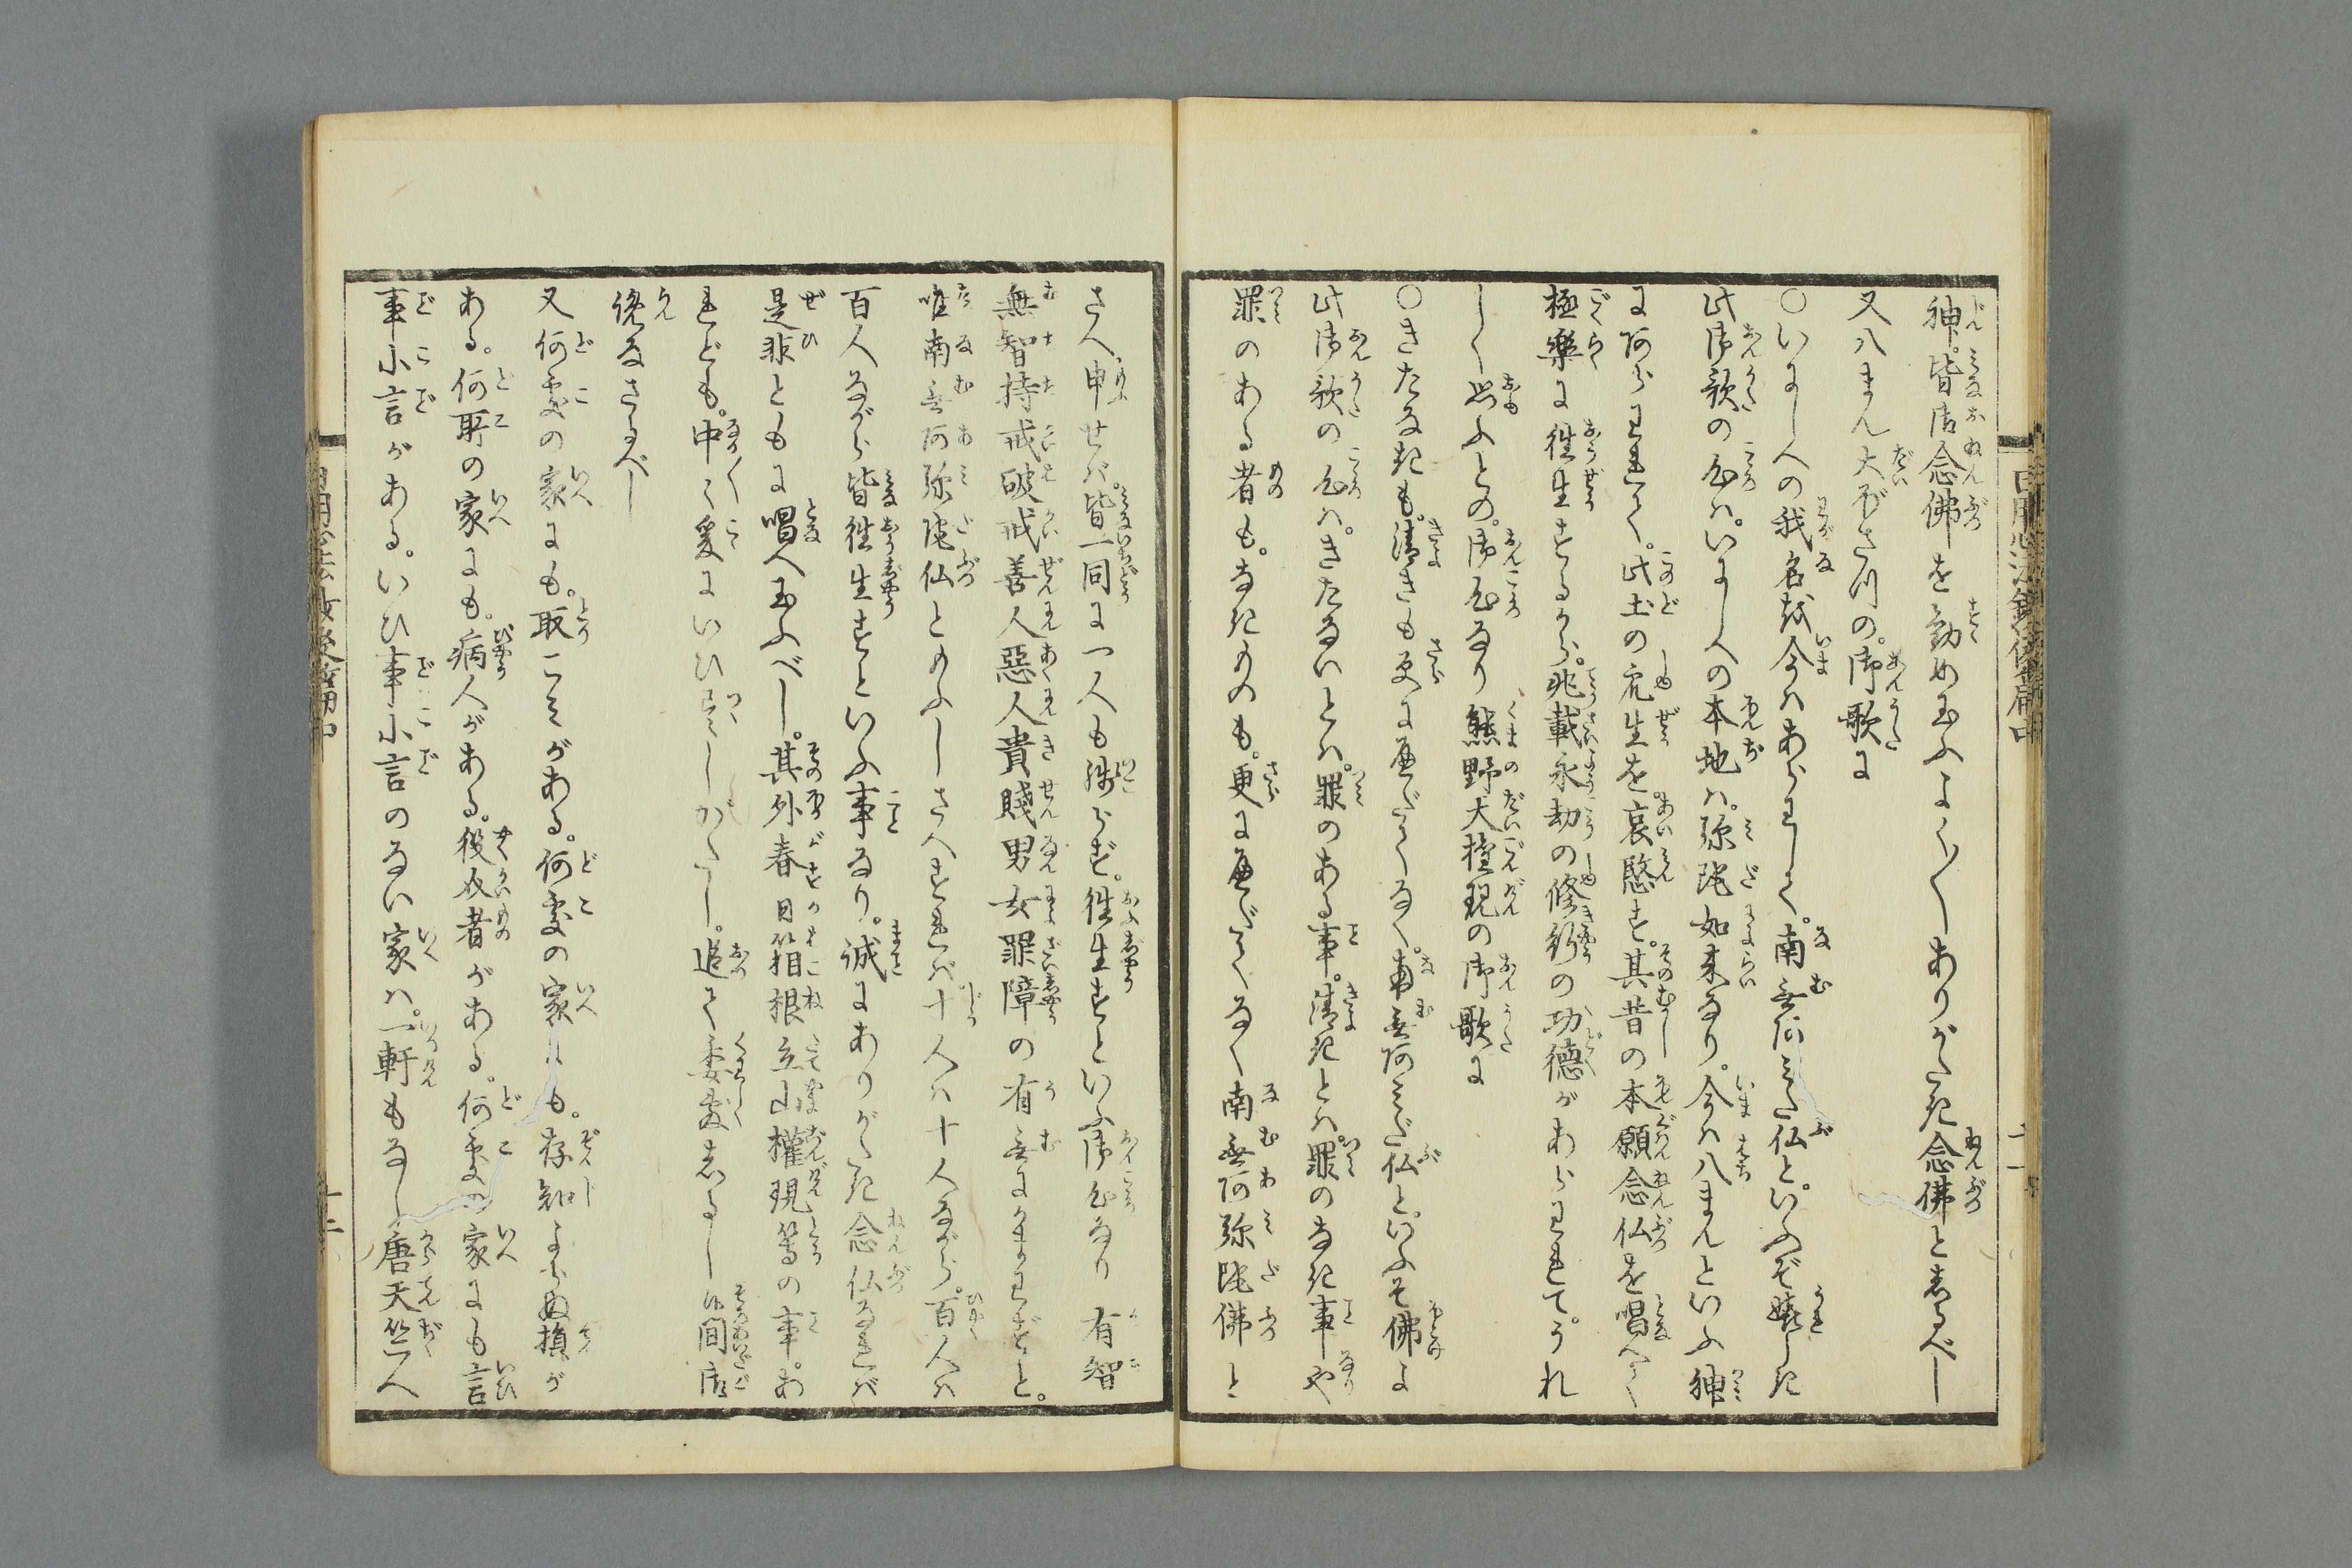 神。皆御念佛を勧め玉ふよく〳〵ありがたき念佛としるべし
又八まん大ぼさつの。御歌に
○いにしへの我名は今はあらわして。南無阿ミた仏と。いふぞ嬉しき
此御歌の心は。いにしへの本地は。弥陀如来なり。今は八まんといふ神
にあらわれて。此土の衆生を。哀愍す。其昔の本願念仏を唱へて
極樂に徃生するから。兆載永劫の修行の功德があらわれて。うれ
しく思ふとの。御心なり熊野大権現の御歌に
○きたなきも。清きも更にへだてなく。南無阿ミだ仏と。いふぞ佛よ
此御歌の心は。きたないとは。罪のある事。清きとは罪のなき事や
罪のある者も。なきものも。更にへだてなく南無阿弥陀佛と
さへ申せば。皆一同に一人も殘らず。徃生すといふ御心なり有智
無智持戒破戒善人惡人貴賤男女罪障の有無にかまわずと。
唯南無阿弥陀仏とのふしさへすれば十人は十人ながら。百人は
百人ながら皆徃生すといふ事なり。誠にありがたき念仏なれば
是非ともに唱へ玉ふべし。其外春日箱根立山權現等の事。あ
れども。中〳〵爰にいひ尽しがたし。追て委敷しるし候間御
覧なさるべし
又何處の家にも。取こみがある。何處の家にも。存知よらぬ損が
ある。何所の家にも。病人がある。役女者がある。何處の家にも言
事小言がある。いひ事小言のない家は。一軒もなし唐天竺へ